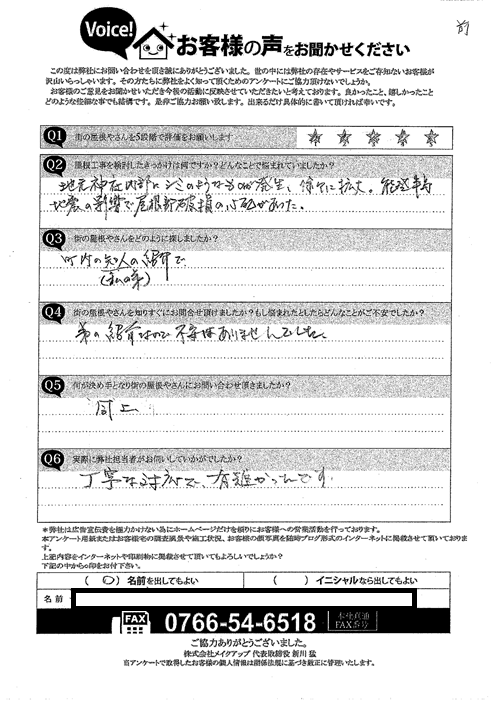 Voice!
前
お客様の声をお聞かせください
この度は弊社にお問い合わせを頂き誠にありがとうございました。世の中には弊社の存在やサービスをご存知ないお客様が
沢山いらっしゃいます。その方たちに弊社をよく知って頂くためのアンケートにご協力頂けないでしょうか。
お客様のご意見をお聞かせいただき今後の活動に反映させていただきたいと考えております。良かったこと、嬉しかったこと
どのような些細な事でも結構です。是非ご協力お願い致します。出来るだけ具体的に書いて頂ければ幸いです。
Q1 街の屋根やさんを5段階で評価をお願いします
Q2 屋根工事を検討したきっかけは何ですか?どんなことで悩まれていましたか?
地元神社内部にシミのようなものが発生、徐々に拡大。能登半島
地震の影響で屋根折破損の心配があった。
Q3 街の屋根やさんをどのように探しましたか?
町内の知人の紹介で
(私の弟)
Q4 街の屋根やさんを知りすぐにお問合せ頂けましたか?もし悩まれたとしたらどんなことがご不安でしたか?
弟の紹介なので不安はありませんでした。
Q5 何が決め手となり街の屋根やさんにお問い合わせ頂きましたか?
同上
Q6 実際に弊社担当者がお伺いしていかがでしたか?
丁寧な対応で、有難かったです。
*弊社は広告宣伝費を極力かけない為にホームページだけを頼りにお客様への営業活動を行っております。
本アンケート用紙またはお客様宅の調査風景や施工状況、お客様の顔写真を随時ブログ形式のインターネットに掲載させて頂いておりま
す。
上記内容をインターネットや印刷物に掲載させて頂いてもよろしいでしょうか?
下記の中から○印をお付け下さい。
( ○ ) 名前を出してもよい ( ) イニシャルなら出してもよい
名前
FAX 0766-54-6518 本社直通 FAX番号
ご協力ありがとうございました。
株式会社メイクアップ 代表取締役 新川 猛
当アンケートで取得したお客様の個人情報は関係法規に基づき厳正に管理いたします。